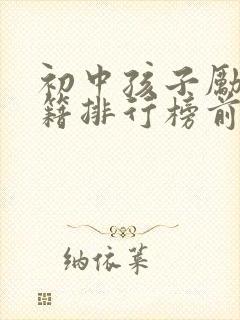 初中孩子励
籍排行榜前
纳依莱